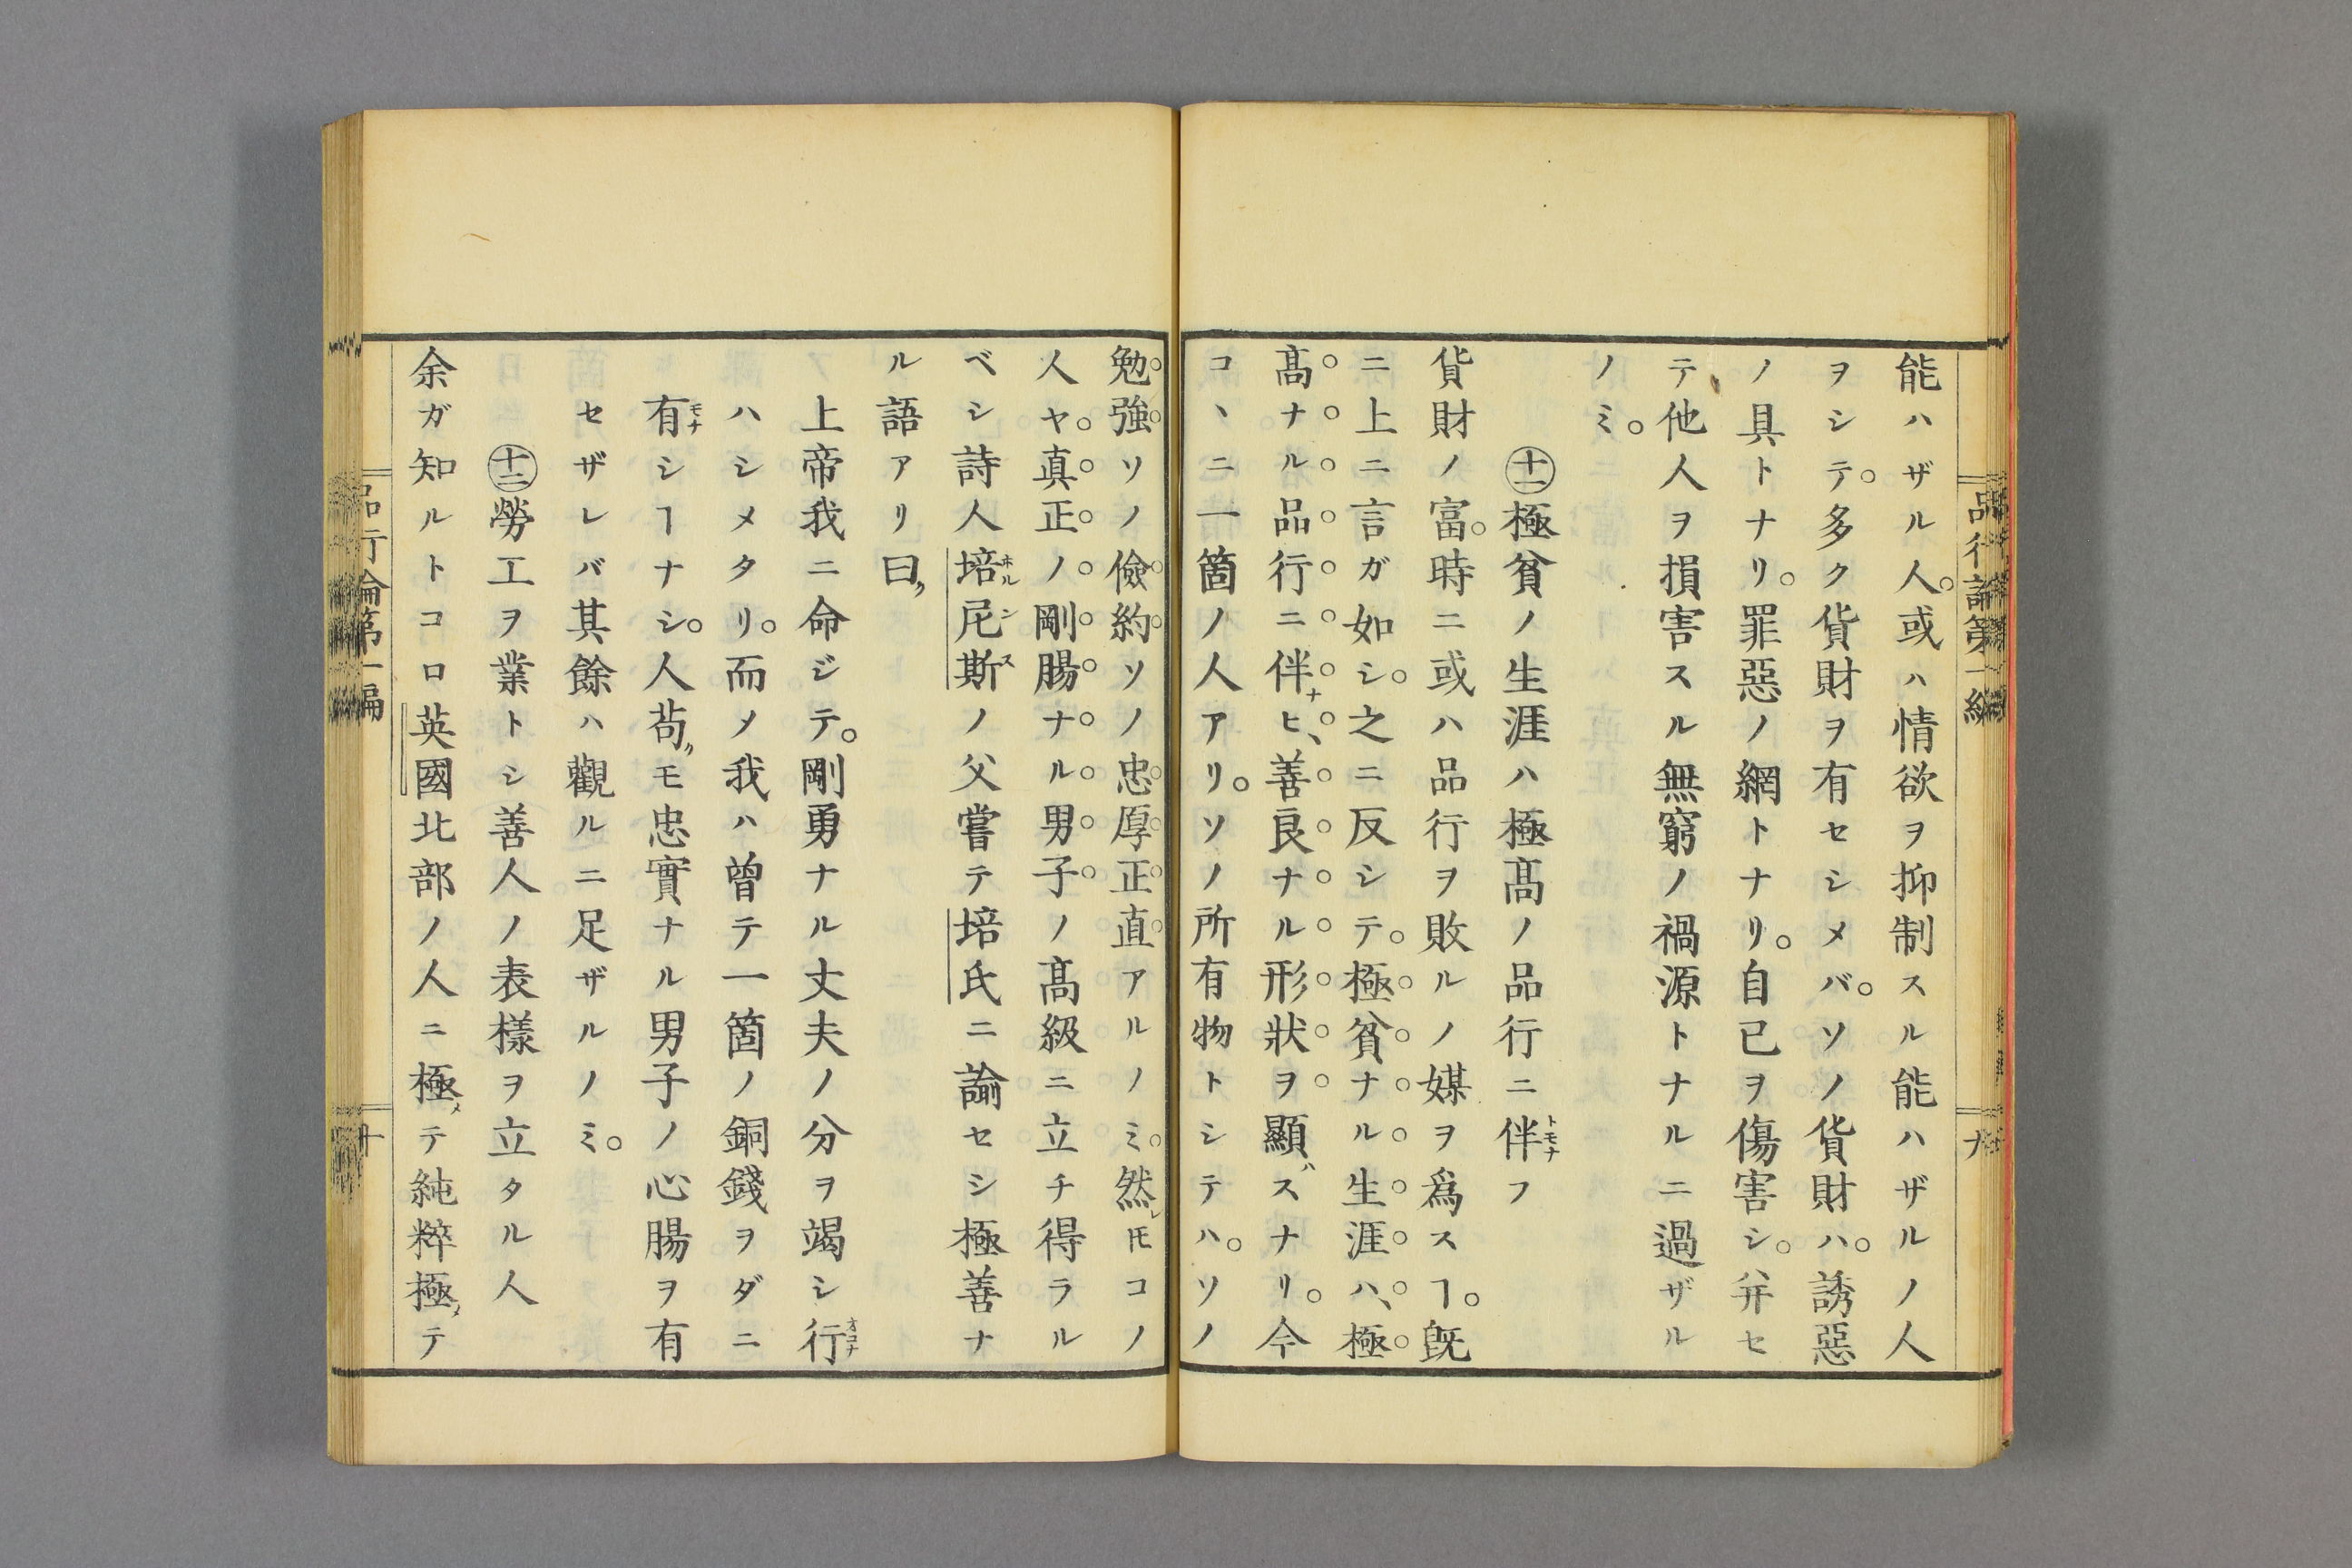 能ハザル人。或ハ情欲ヲ抑制スル能ハザルノ人
ヲシテ。多ク貨財ヲ有セシメバ。ソノ貨財ハ。誘惡
ノ具トナリ。罪惡ノ網トナリ。自已ヲ傷害シ。并セ
テ他人ヲ損害スル無窮ノ禍源トナルニ過ザル
ノミ。
㊉一極貧ノ生涯ハ極髙ノ品行ニ伴フ
貨財ノ富。時ニ或ハ品行ヲ敗ルノ媒ヲ爲スヿ。旣
ニ上ニ言ガ如シ。之ニ反シテ。極貧ナル生涯ハ、極
髙ナル品行ニ伴ナヒ、善良ナル形狀ヲ顯ハスナリ。今
コヽニ一箇ノ人アリ。ソノ所有物トシテハ。ソノ
勉強ソノ儉約ソノ忠厚正直アルノミ。然レ𪜈コノ
人ヤ。真正ノ剛腸ナル男子ノ髙級ニ立チ得ラル
ベシ詩人培尼斯ノ父嘗テ培氏ニ諭セシ極善ナ
ル語アリ曰ク
上帝我ニ命ジテ。剛勇ナル丈夫ノ分ヲ竭シ行
ハシメタリ。而メ我ハ曾テ一箇ノ銅錢ヲダニ
有シヿナシ。人苟クモ忠實ナル男子ノ心腸ヲ有
セザレバ其餘ハ觀ルニ足ザルノミ。
㊉二勞工ヲ業トシ善人ノ表樣ヲ立タル人
余ガ知ルトコロ英國北部ノ人ニ極メテ純粹極メテ
品行論第一編
十